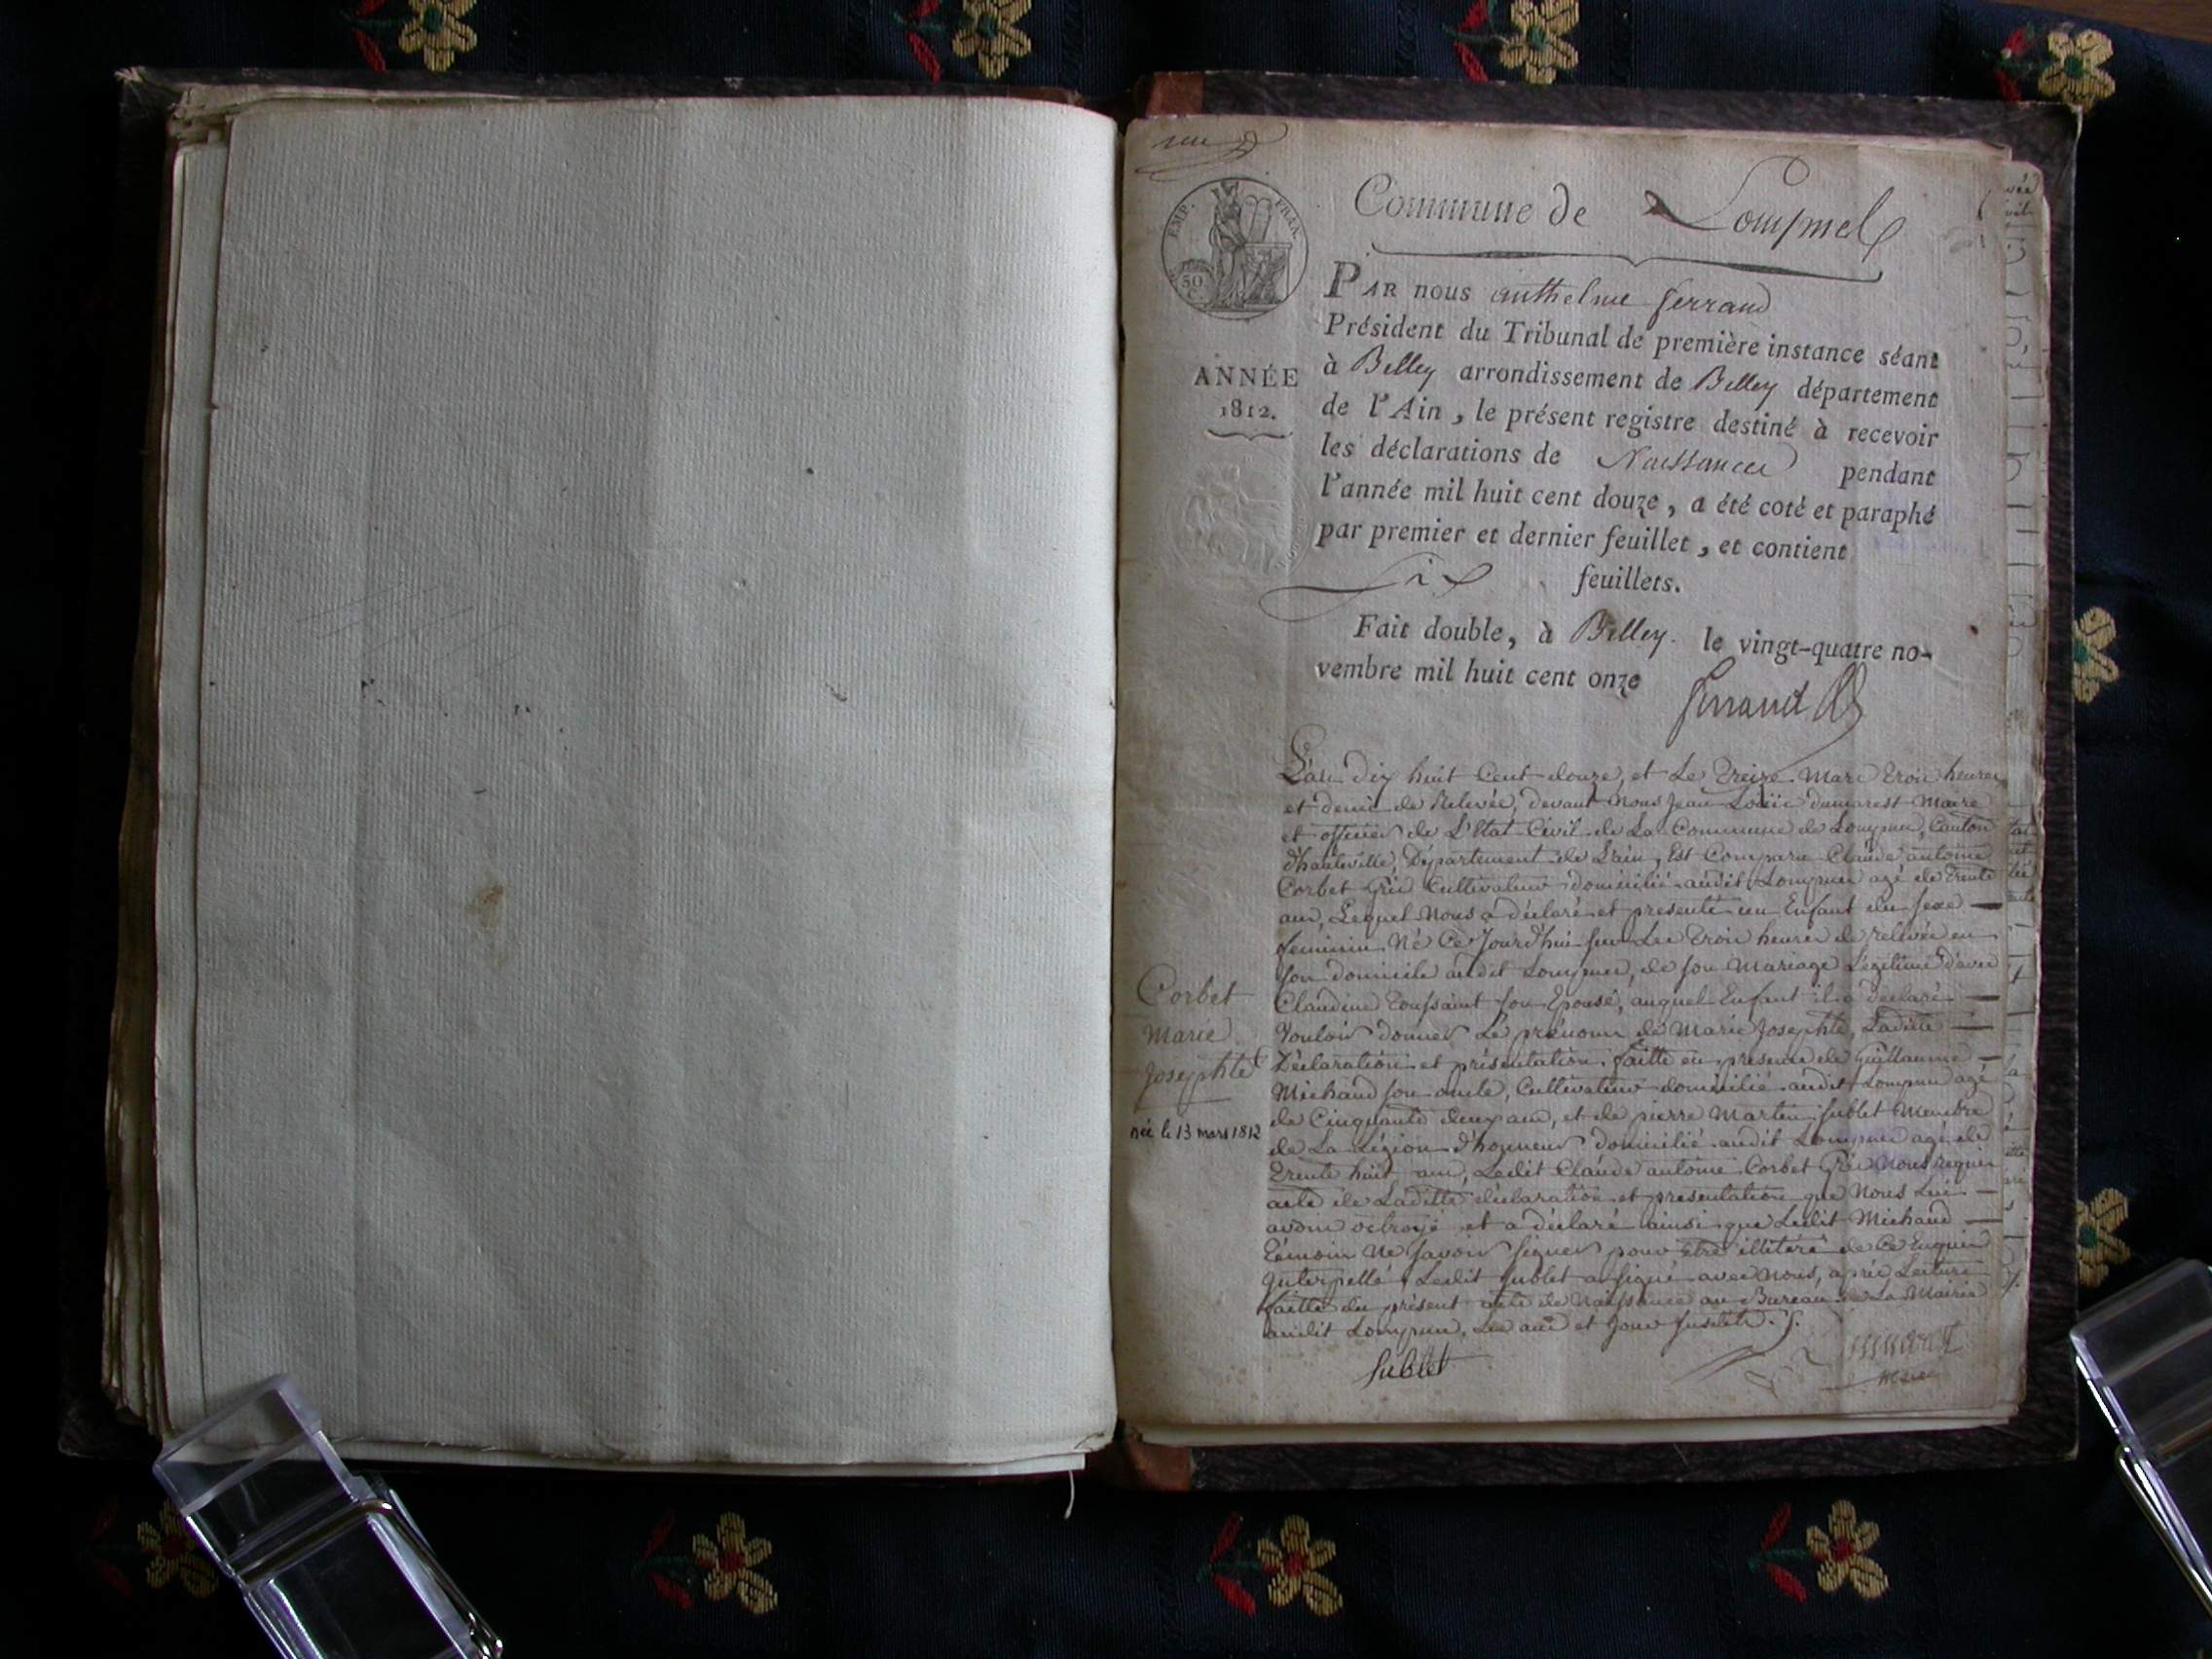 un
EMP. FRAN.
50
C.
Commune de Lompnel
ANNÉE
1812.
PAR nous anthelme ferrand
Président du Tribunal de première instance séant
à Belley arrondissement de Belley département
de l'Ain, le présent registre destiné à recevoir
les déclarations de Naissances pendant
l'année mil huit cent douze, a été coté et paraphé
par premier et dernier feuillet, et contient
Six feuillets.
Fait double, à Belley. le vingt-quatre no-
vembre mil huit cent onze
ferrand
L'an dix huit Cent douze, et Le Treize Mars trois heures
et demie de Relevée, devant Nous Jean Loüis dumarest Maire
et officier de L'Etat Civil de La Commune de Lompnes, Canton
d'hauteville, Département de L'ain, Est Comparu Claude antoine
Corbet Gris Cultivateur domicilié audit Lompnes agé de Trente
ans, Lequel Nous a déclaré et presenté un Enfant du sexe
feminin Né Ce Jourd'hui sur Les Trois heures de relevée en
son domicile audit Lompnes, de son Mariage Légitime d'avec
Claudine Toussaint son Epouse, auquel Enfant il a déclaré
Vouloir donner Le prénom de Marie Josephte, Laditte
Déclaration et présentation faitte en presence de Guillaume
Michaud son oncle, Cultivateur domicilié audit Lompnes agé
de Cinquante deux ans, et de pierre Martin Sublet Membre
de La Légion d'honneur domicilié audit Lompnes agé de
Trente huit ans, Ledit Claude antoine Corbet Gris Nous requis
acte de Laditte déclaration et presentation que Nous Lui
avons octroyé et a déclaré ainsi que Ledit Michaud
témoin Ne savoir signer pour être illitéré de Ce Enquis
Interpellé, Ledit Sublet a signé avec Nous, après Lecture
faitte du présent acte de Naissance au Bureau de La Mairie
audit Lompnes, Les an et Jour susdits.
Corbet
Marie
Josephte
née le 13 mars 1812
Sublet
Dumarest
Maire